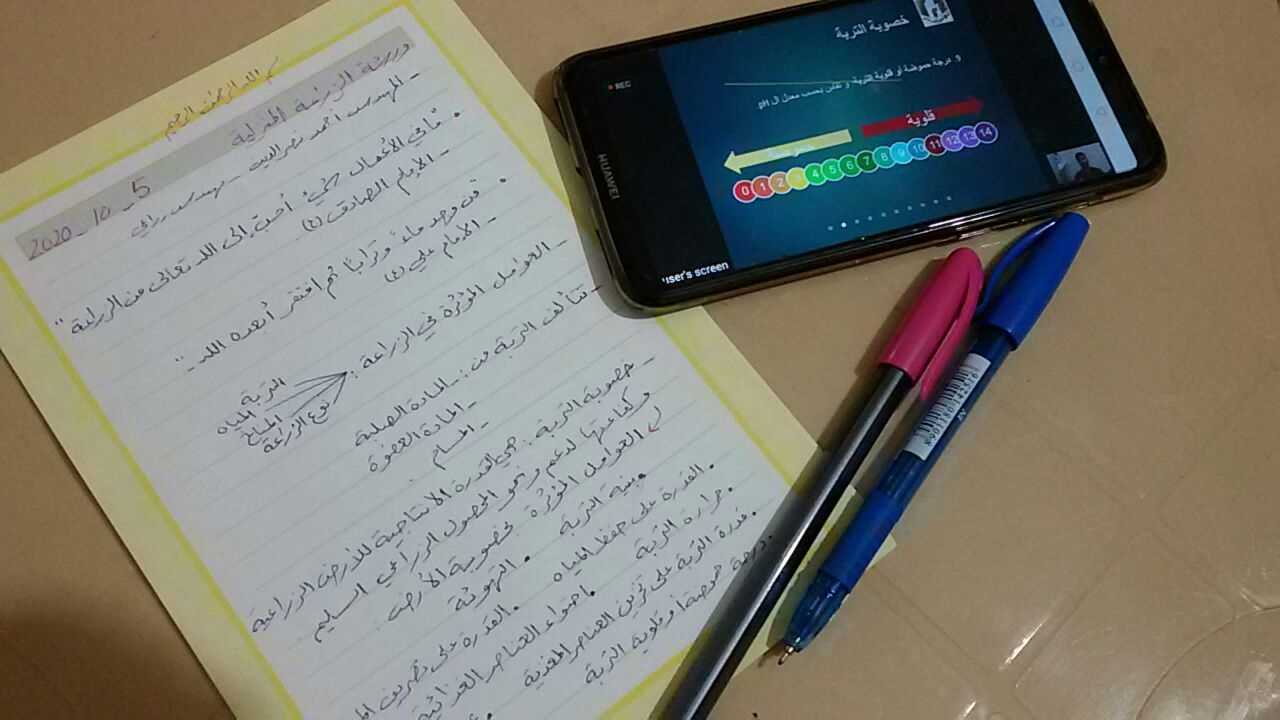 بسم الله الرحمن الرحيم
ورشة الزراعة المنزلية
5_10_2020
- المهندس أحمد نصر الدين - مهندس زراعي
. مافي الأعمال شيء أحب إلى الله تعالى من الزراعة "
- الإمام الصادق (ع).
. من وجد ماءً وتراباً ثم افتقر أبعده الله - "
- الإمام علي (ع)
- العوامل المؤثرة في الزراعة :
التربة
المياه
المناخ
نوع الزراعة
- تتألف التربة من : - المادة الصلبة
- المادة العضوية
- المسام .
- خصوبة التربة : هي القدرة الانتاجية للأرض الزراعية
وكفاءتها لدعم ونمو المحصول الزراعي السليم
العوامل المؤثرة بخصوبة الأرض :
. بنية التربة . التهوئة
. القدرة على حفظ المياه . القدرة على تصريف
. حرارة التربة . احتواء العناصر الغذائية
. قدرة التربة على تخزين العناصر المغذية
. درجة حموضة أو قلوية التربة
REC
HUAWEI
خصوبة التربة
و. درجة حموضة أو قلوية التربة: و تقاس بحسب معدل ال pH
قلوية
0 1 2 3 4 5 6 7 8 9 10 11 12 13 14
user's screen